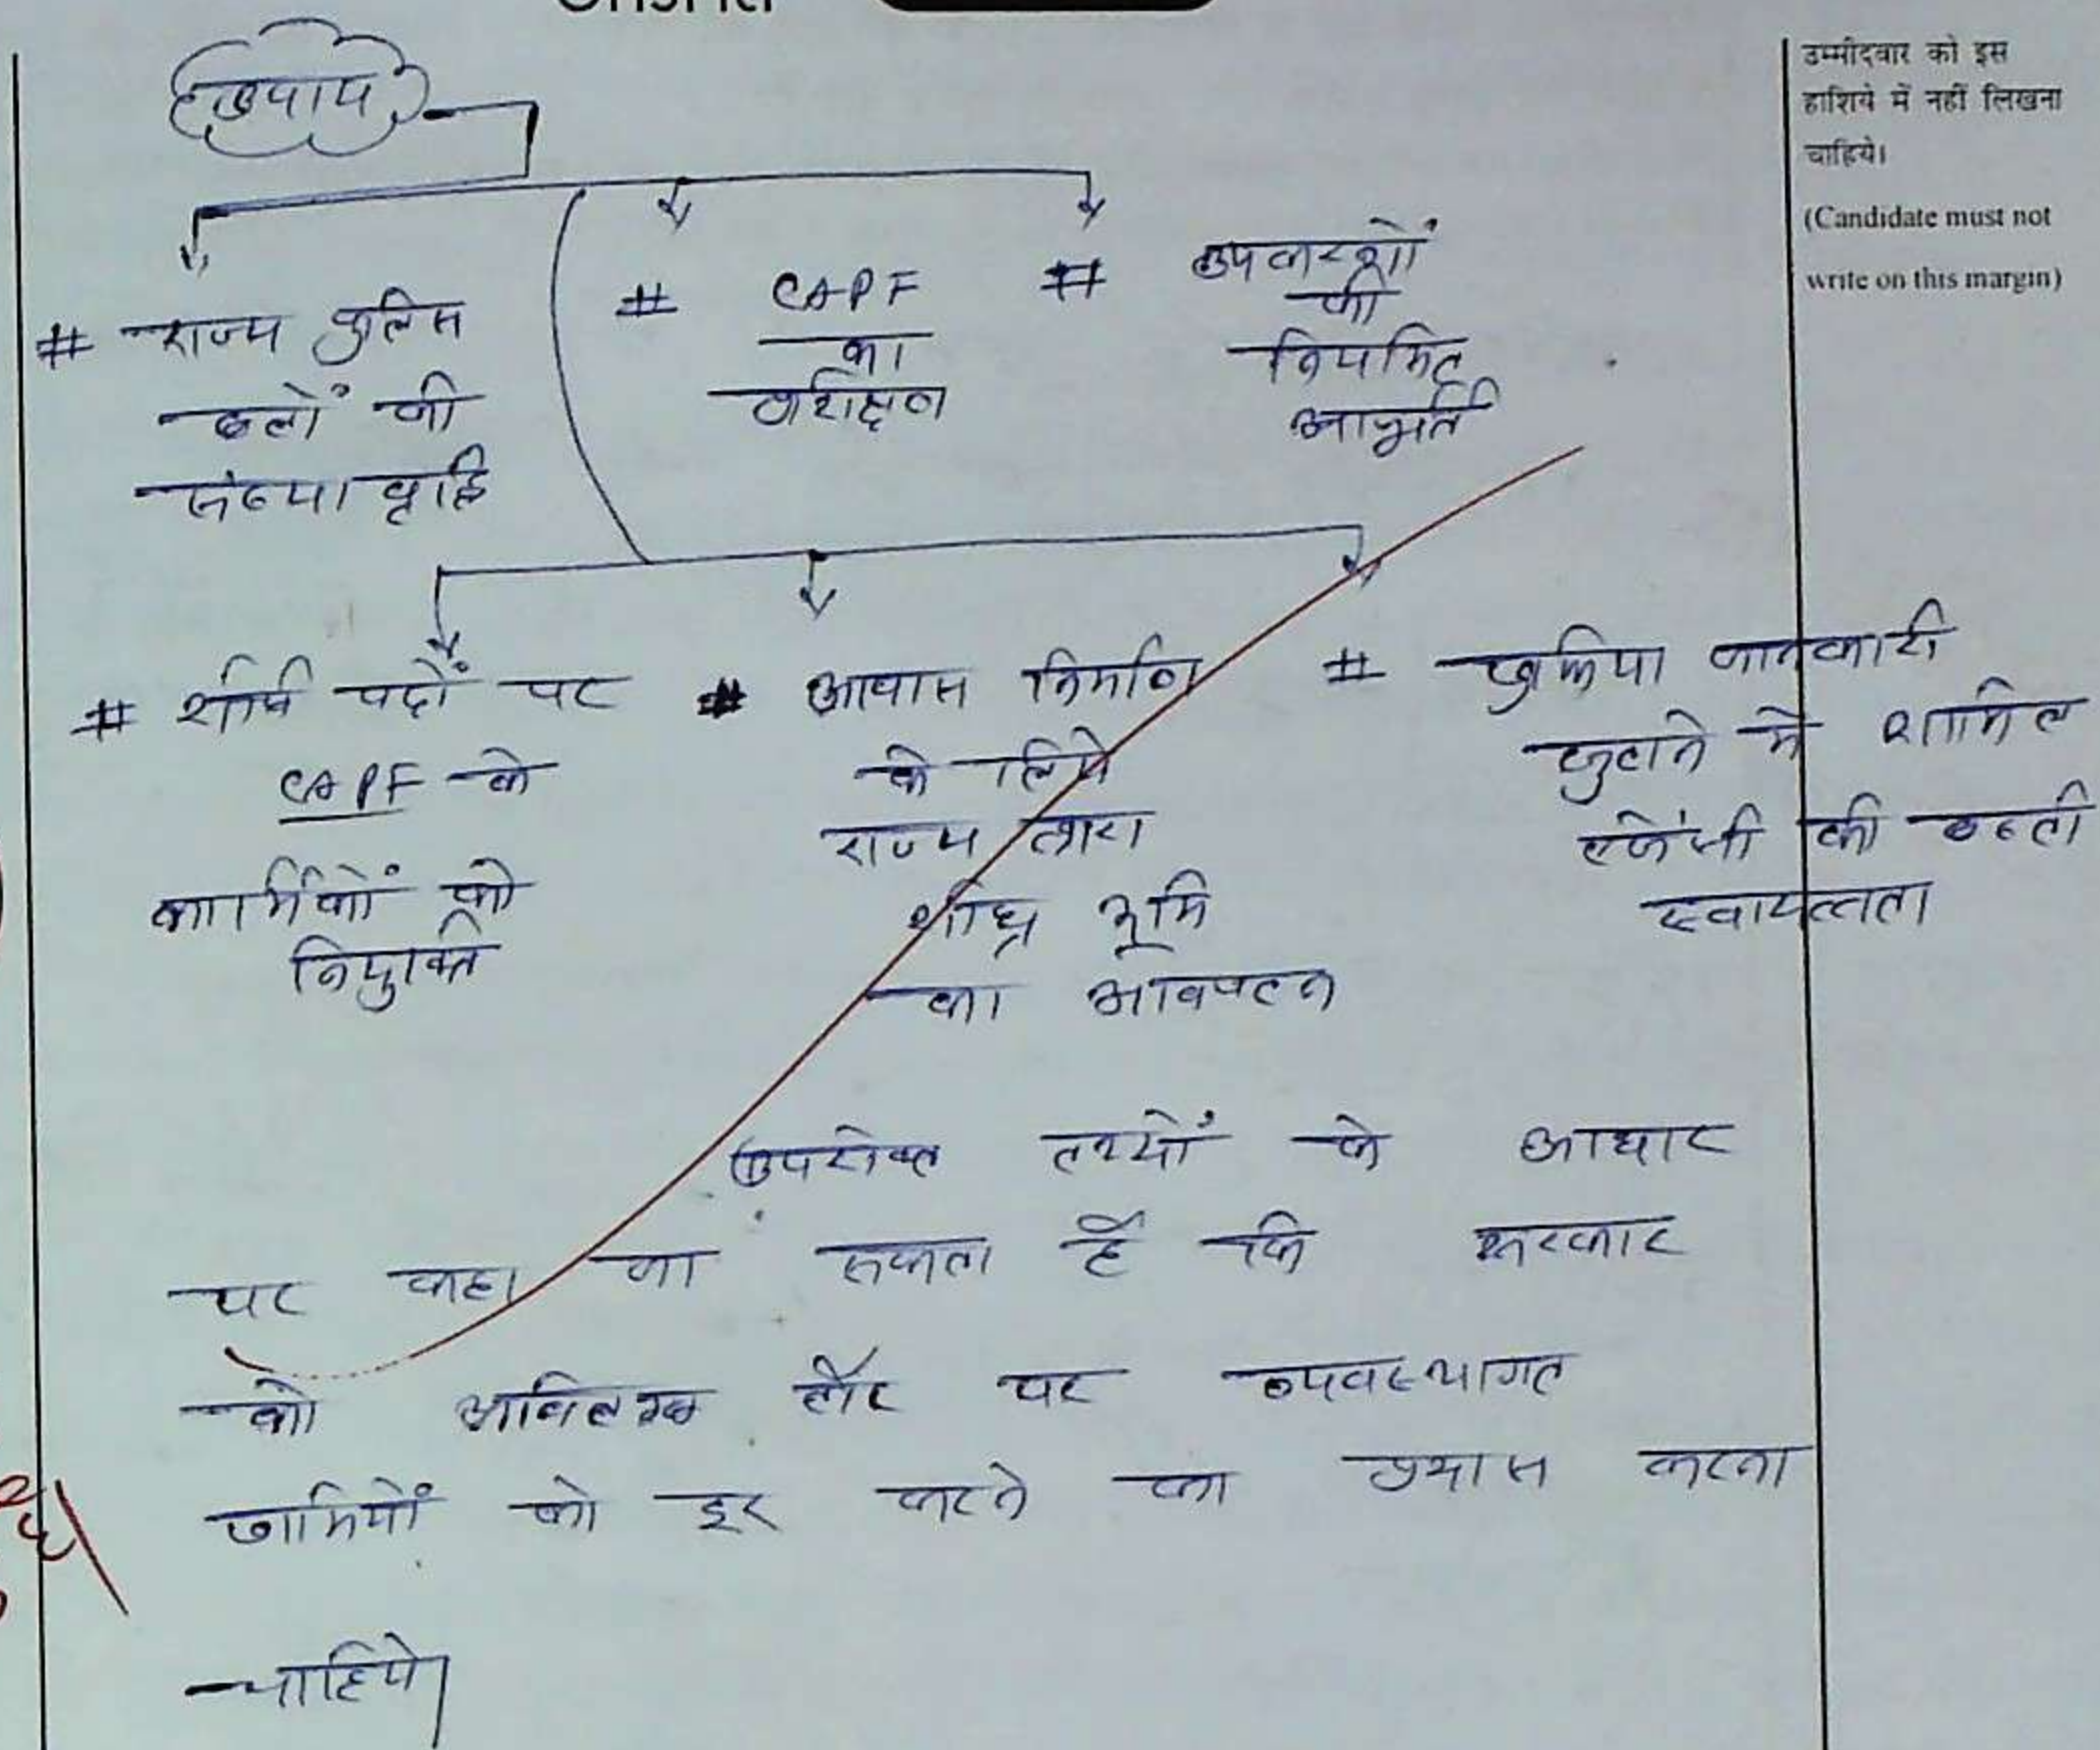 उपाय
# राज्य पुलिस
बलों की
संख्या वृद्धि
# CAPF
का
प्रशिक्षण
# उपकरणों
की
नियमित
आपूर्ति
# शीर्ष पदों पर
CAPF के
कार्मिकों को
नियुक्ति
# आवास निर्माण
के लिये
राज्य द्वारा
शीघ्र भूमि
का आवण्टन
# खुफिया जानकारी
जुटाने मे शामिल
एजेंसी की बढती
स्वायत्तता
उपरोक्त तथ्यों के आधार
पर कहा जा सकता है कि सरकार
को अविलम्ब तौर पर व्यवस्थागत
खामियों को दूर करने का प्रयास करना
चाहिये।
उम्मीदवार को इस
हाशिये में नहीं लिखना
चाहिये।
(Candidate must not
write on this margin)